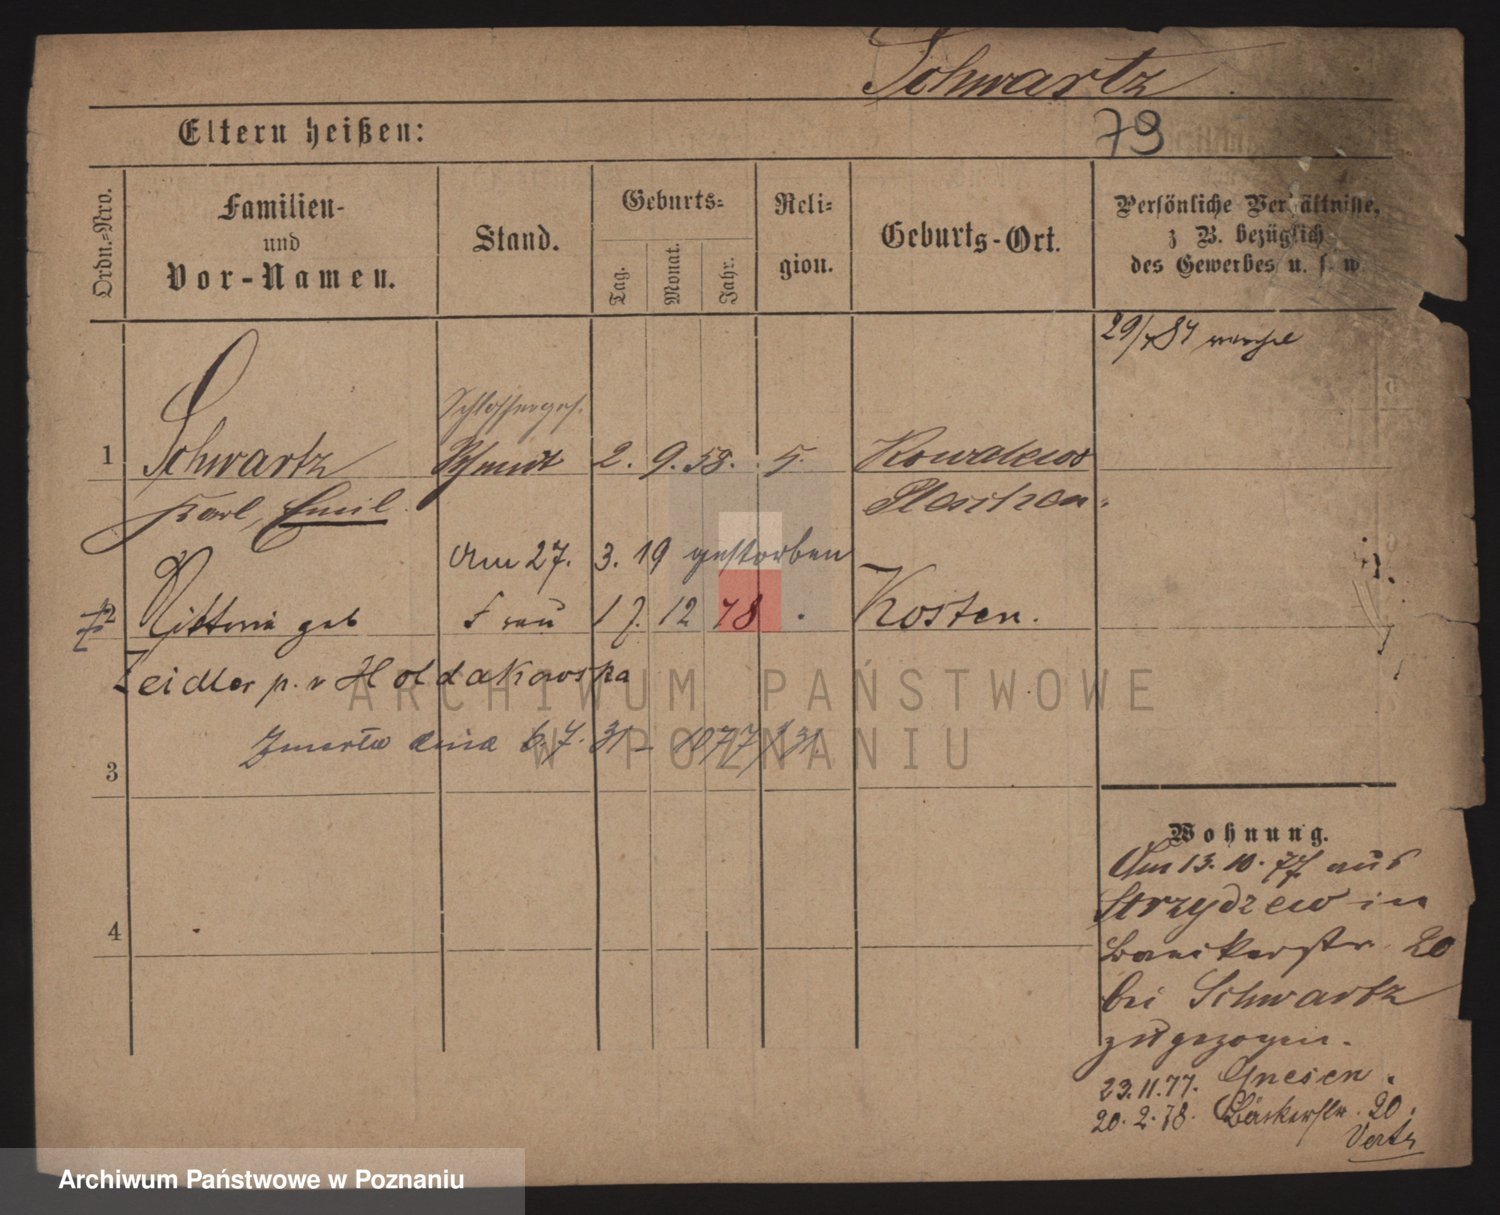 Schwartz
79
Eltern heißen:
Ordn.-Nro.
Familien-
und
Vor-Namen.
Stand.
Geburts-
Tag.
Monat.
Jahr.
Reli-
gion.
Geburts-Ort.
Persönliche Verhältnisse,
z B. bezüglich
des Gewerbes u. s. w.
29/ 84
Schlosserges.
1 Schwartz 2. 9. 58.
Karl, Emil Pleschen.
Am 27. 3. 19 gestorben
2 geb Frau 17. 12 78 Kosten.
Zeidler p. v Holdakowska
Zmarła dnia 6.7.31 - 1077/31.
3
4
Wohnung.
Am 13. 10. 77 aus
Strzydzew in
Baeckerstr 20
bei Schwartz
zugezogen.
23. 11. 77. Gnesen.
20. 2. 78. Bäckerstr. 20.
ARCHIWUM PAŃSTWOWE
W POZNANIU
Archiwum Państwowe w Poznaniu